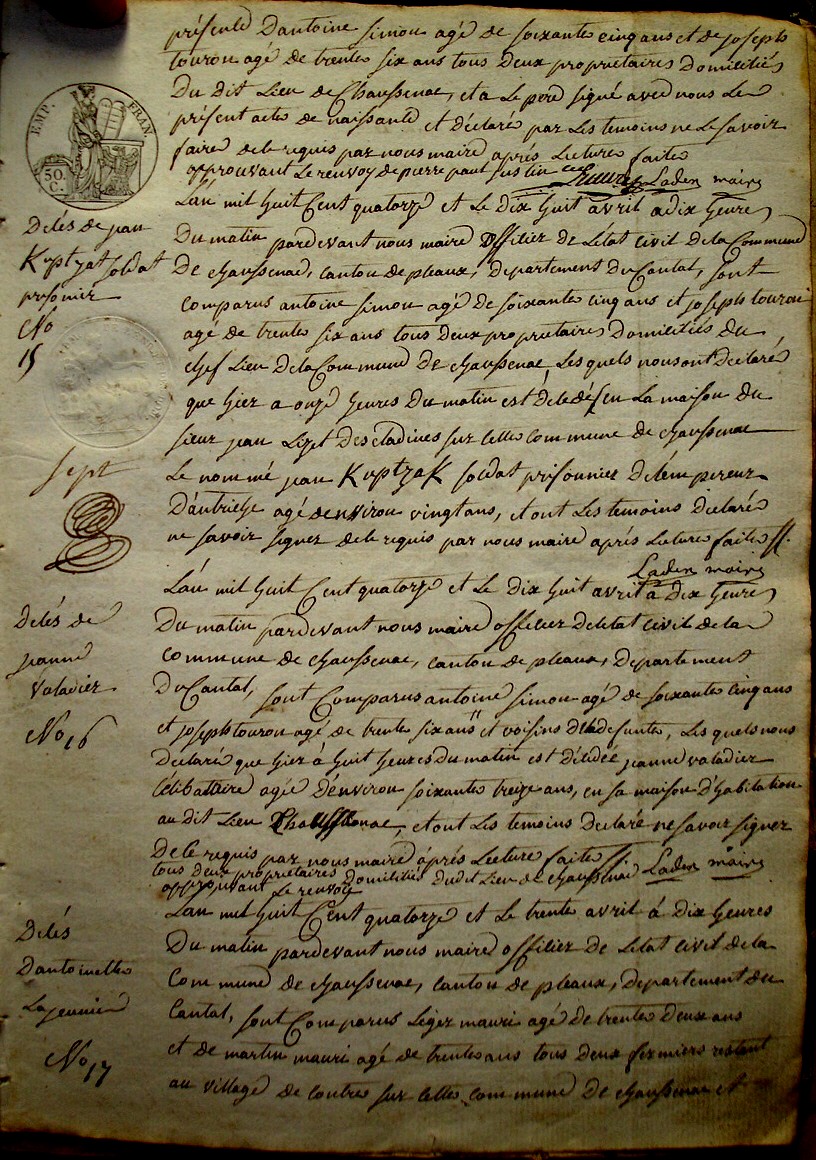 présence d'antoine simon agé de soixante cinq ans et de joseph
touron agé de trente six ans tous deux proprietaires domiciliés
Du dit Lieu de Chaussenac, et a Le pere signé avec nous Le
présent acte de naissance et déclaré par Les temoins ne Le savoir
faire de le requis par nous maire après Lecture faite
approuvant Le renvoy de pierre paul
Laden maire
EMP. FRAN
50 C.
Décés de jean
Kuptzak soldat
prisonier
No
15
L'an mil huit Cent quatorze et Le dix huit avril a dix heures
Du matin pardevant nous maire officier de L'état civil de la Commune
De chaussenac, canton de pleaux, departement Du Cantal, sont
comparus antoine simon agé de soixante cinq ans et joseph touron
agé de trente six ans tous deux proprietaires Domiciliés du
chef Lieu de la Commune de chaussenac Les quels nous ont declaré
que hier a onze heures Du matin est décédé en La maison du
sieur jean Lizet des sur cette commune de chaussenac
Le nommé jean Kuptzak soldat prisonnier de L'empereur
D'autriche agé denviron vingt ans, et ont Les temoins déclaré
ne savoir signer de le requis par nous maire après Lecture faite
Laden maire
sept
Décés de
jeanne
valadier
No 16
L'an mil huit Cent quatorze et Le dix huit avril a dix heures
Du matin pardevant nous maire officier de letat civil de la
commune de chaussenac, canton de pleaux, departement
Du Cantal, sont Comparus antoine simon agé de soixante cinq ans
et joseph touron agé de trente six ans et voisins de la defunte, Les quels nous
Declaré que hier à huit heures Du matin est décédée jeanne valadier
Célibattaire agée D'environ soixante treize ans, en sa maison D'habitation
au dit Lieu Chaussenac, et ont Les temoins Declaré ne savoir signer
De le requis par nous maire après Lecture faite
Laden maire
tous deux proprietaires domiciliés du dit Lieu de chaussenac
approuvant Le renvoy
Décés
Dantoinette
Lajeunie
No 17
L'an mil huit Cent quatorze et Le trente avril à Dix heures
Du matin pardevant nous maire officier de Letat civil de la
Commune de chaussenac, canton de pleaux, Departement du
Cantal, sont Comparus Leger mauri agé de trente Deux ans
et de martin mauri agé de trente ans tous deux fermiers restant
au village de contres sur cette commune De chaussenac et